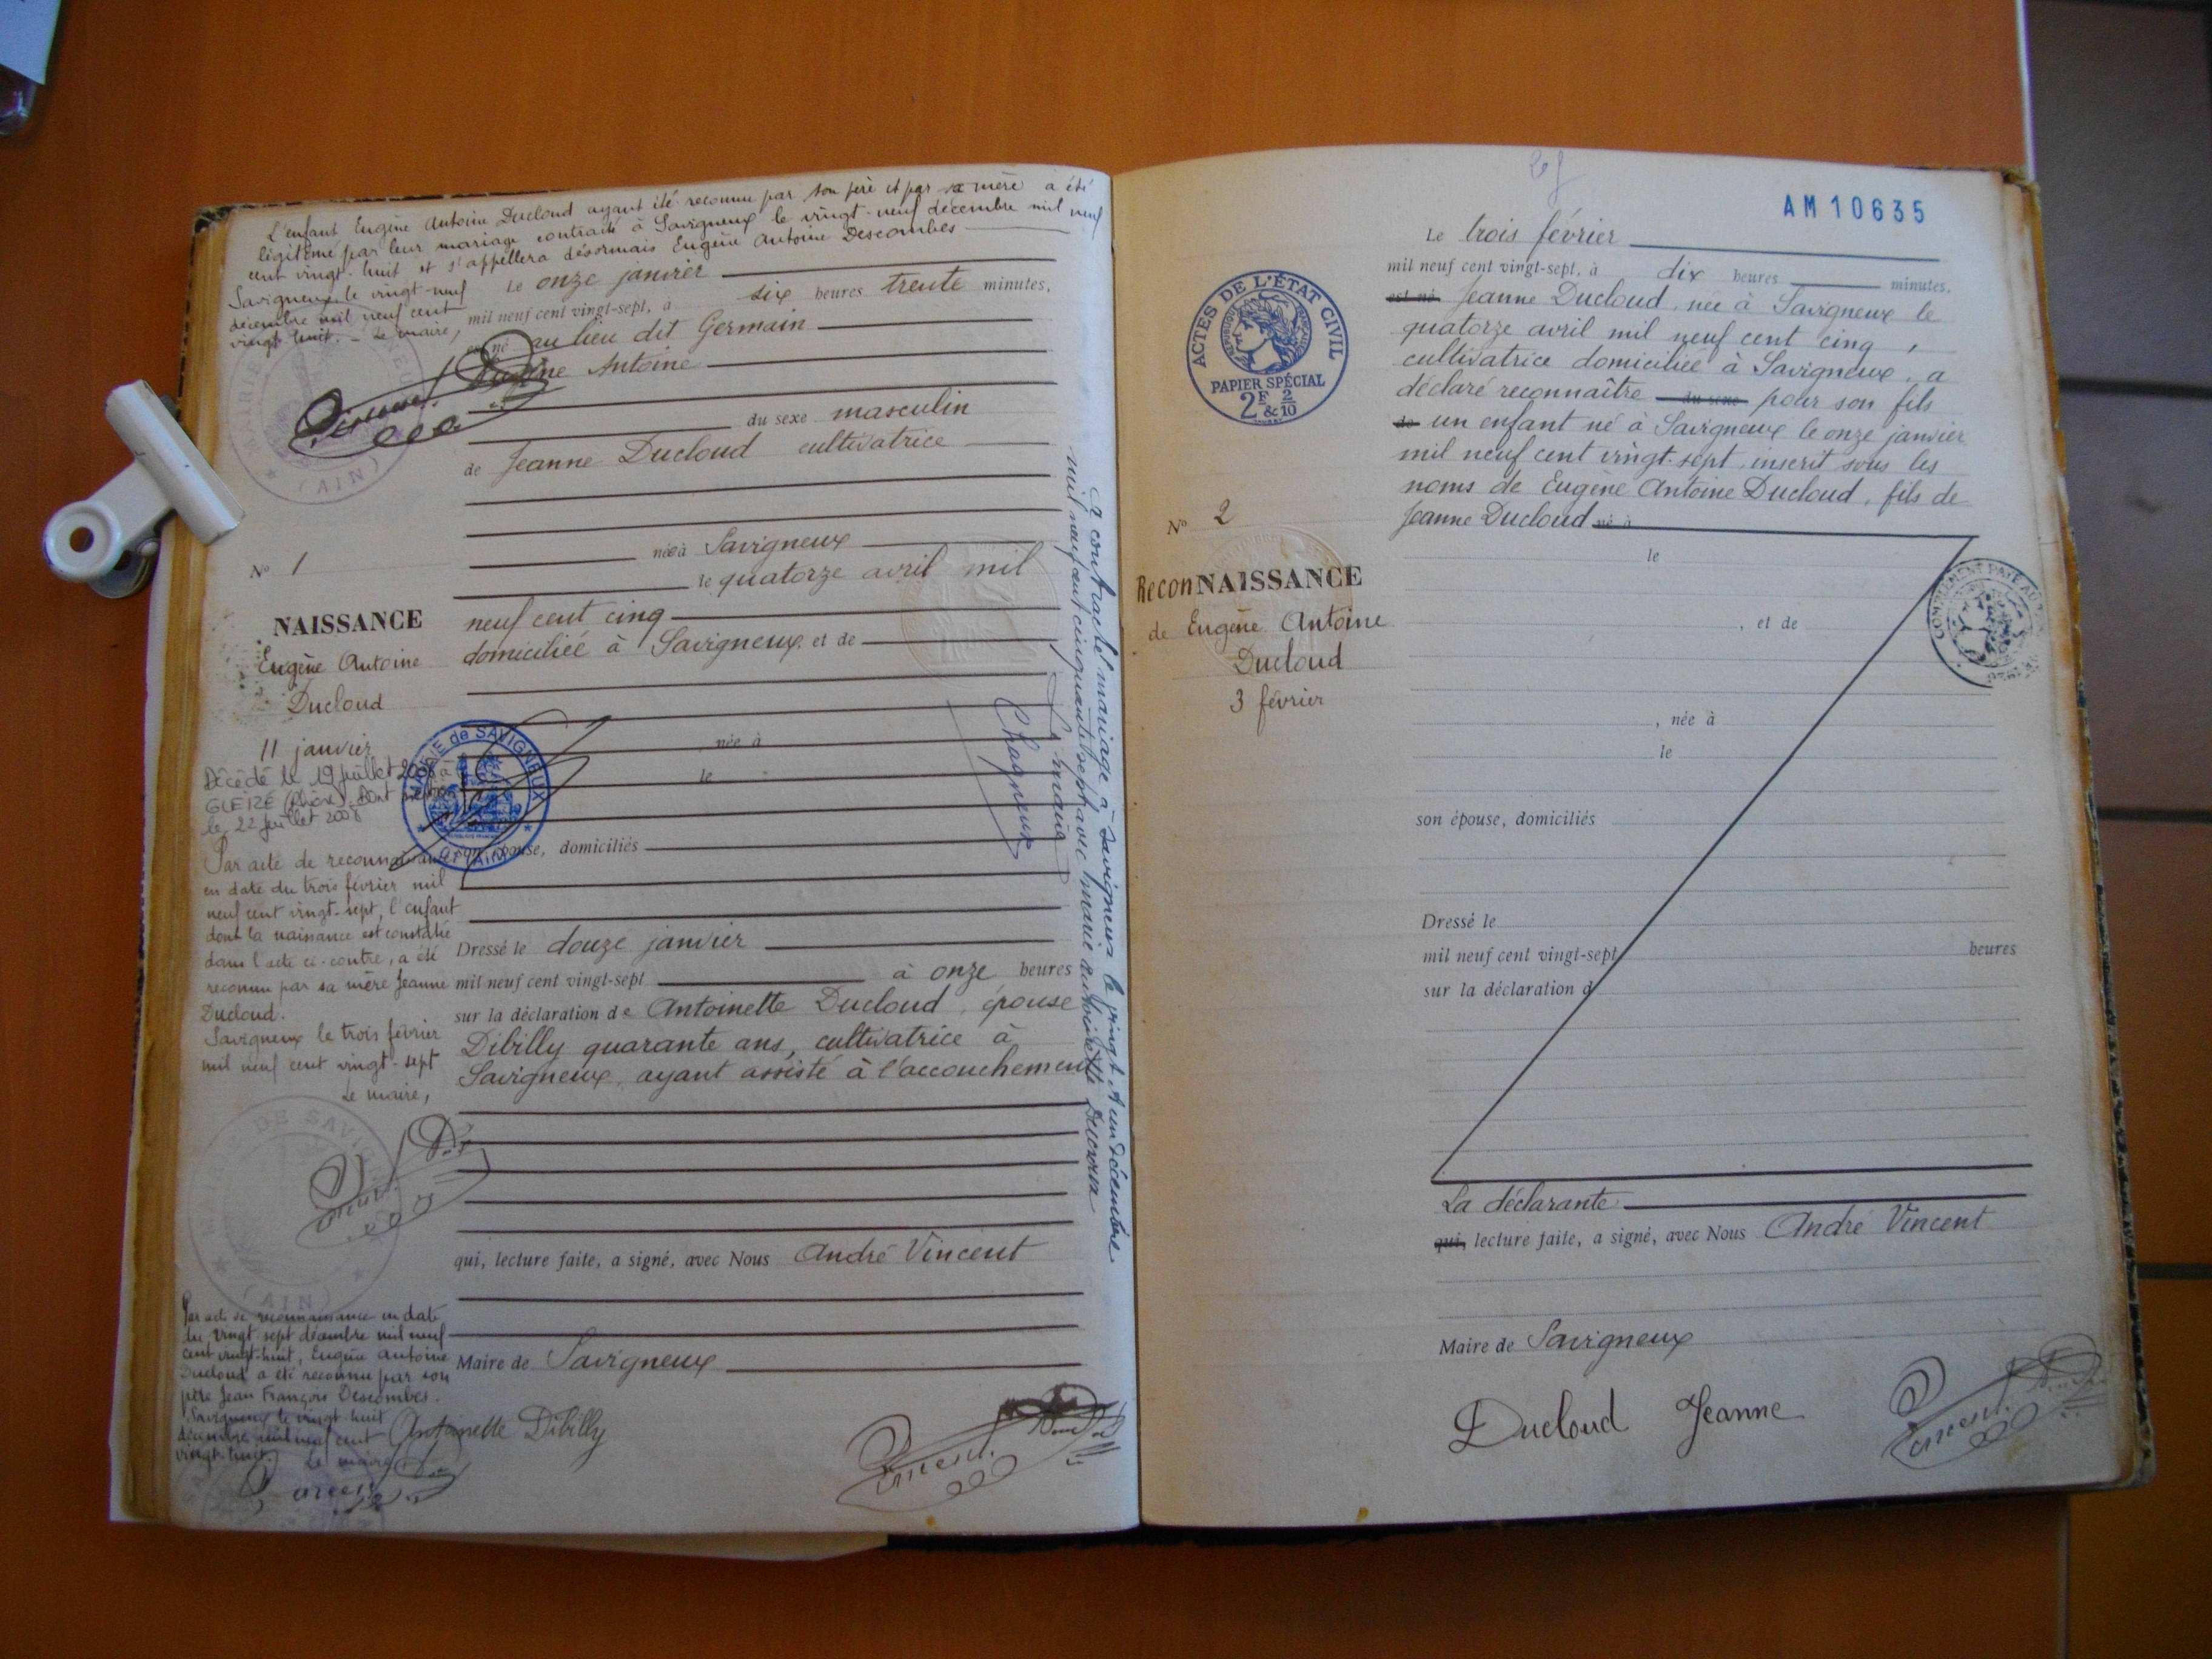 L'enfant Eugène Antoine Ducloud ayant été reconnu par son père et par sa mère a été
légitimé par leur mariage contracté à Savigneux le vingt-neuf décembre mil neuf
cent vingt-huit et s'appellera désormais Eugène Antoine Descombes
Savigneux le vingt-neuf
décembre mil neuf cent
vingt huit. - Le maire,
Le onze janvier
mil neuf cent vingt-sept, à six heures trente minutes,
est né au lieu dit Germain
Eugène Antoine
du sexe masculin
de Jeanne Ducloud cultivatrice
née à Savigneux
le quatorze avril mil
neuf cent cinq
domiciliée à Savigneux, et de
, née à
le
son épouse, domiciliés
Dressé le douze janvier
mil neuf cent vingt-sept à onze heures
sur la déclaration de Antoinette Ducloud, épouse
Dibilly quarante ans, cultivatrice à
Savigneux, ayant assisté à l'accouchement
qui, lecture faite, a signé, avec Nous André Vincent
Maire de Savigneux
Antoinette Dibilly
Vincent
(AIN)
N° 1
NAISSANCE
Eugène Antoine
Ducloud
11 janvier
Décédé le 19 juillet 2008 à
GLEIZÉ (Rhône). Dont mention
le 22 juillet 2008
MAIRIE de SAVIGNEUX
(AIN)
Par acte de reconnaissance
en date du trois février mil
neuf cent vingt-sept, l'enfant
dont la naissance est constatée
dans l'acte ci-contre, a été
reconnu par sa mère Jeanne
Ducloud.
Savigneux le trois février
mil neuf cent vingt-sept
Le maire,
(AIN)
Par acte de reconnaissance en date
du vingt sept décembre mil neuf
cent vingt-huit, Eugène Antoine
Ducloud a été reconnu par son
père Jean François Descombes.
Savigneux le vingt-huit
décembre mil neuf cent
vingt-huit. Le maire
A contracté mariage à Savigneux le vingt et un décembre
mil neuf cent cinquante sept avec Marie Antoinette
Le maire
Chagneux
AM10635
ACTES DE L'ÉTAT CIVIL
RÉPUBLIQUE FRANÇAISE
PAPIER SPÉCIAL
2F 2/10
&
Le trois février
mil neuf cent vingt-sept, à dix heures minutes,
est né Jeanne Ducloud, née à Savigneux le
quatorze avril mil neuf cent cinq,
cultivatrice domiciliée à Savigneux, a
déclaré reconnaître du sexe pour son fils
de un enfant né à Savigneux le onze janvier
mil neuf cent vingt-sept, inscrit sous les
noms de Eugène Antoine Ducloud, fils de
Jeanne Ducloud né à
N° 2
ReconNAISSANCE
de Eugène Antoine
Ducloud
3 février
le
, et de
, née à
le
son épouse, domiciliés
Dressé le
mil neuf cent vingt-sept heures
sur la déclaration d
La déclarante
qui, lecture faite, a signé, avec Nous André Vincent
Maire de Savigneux
Ducloud Jeanne
Vincent